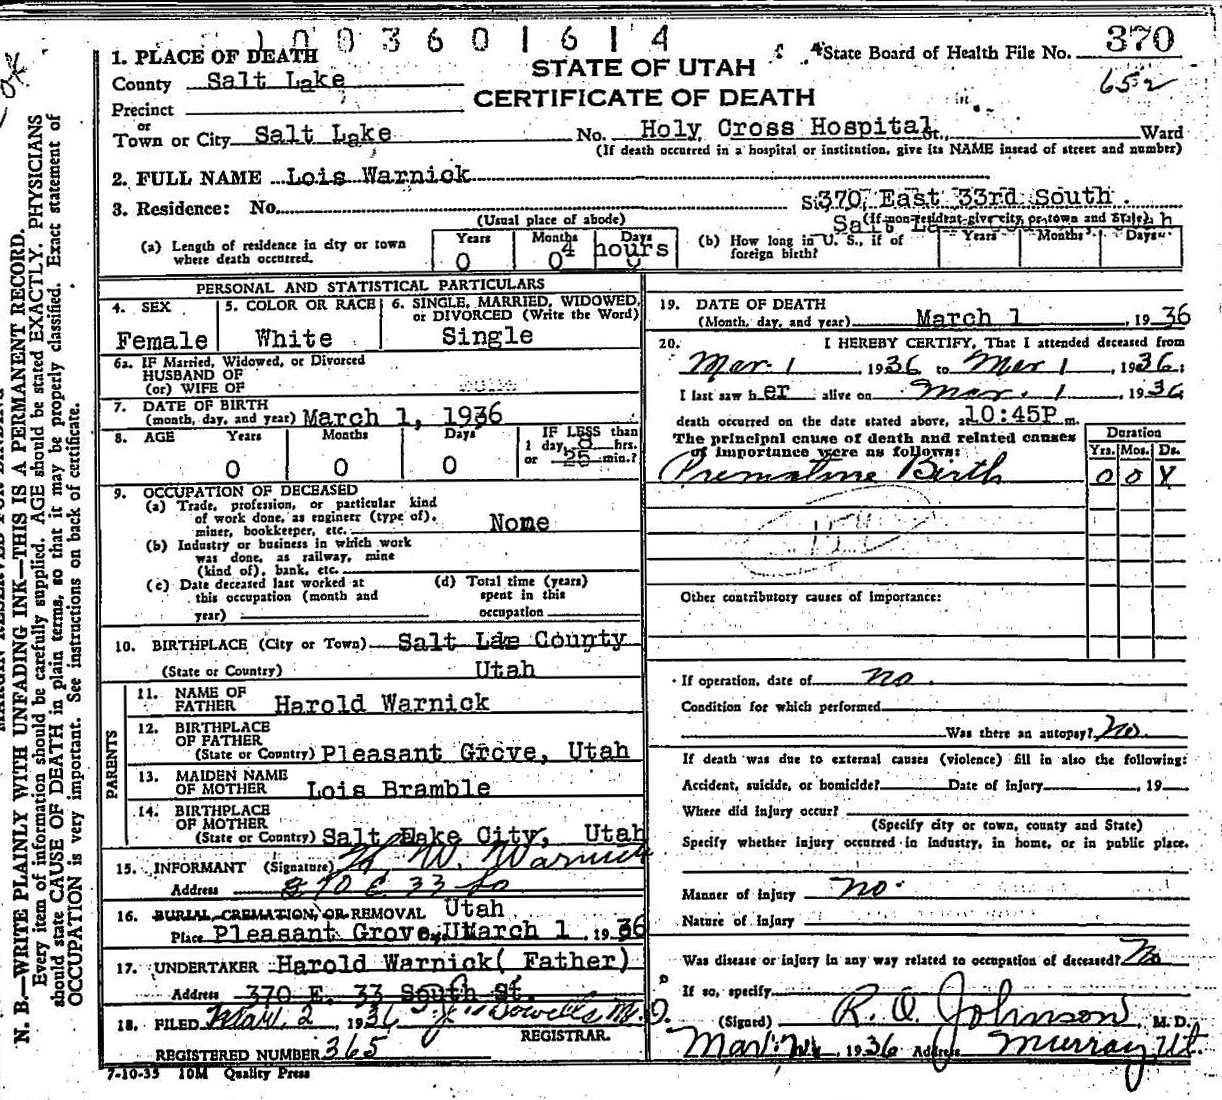 1003601614
1. PLACE OF DEATH
STATE OF UTAH
State Board of Health File No. 370
County Salt Lake
652
CERTIFICATE OF DEATH
Precinct
or
Town or City Salt Lake No. Holy Cross Hospital St., Ward
(If death occurred in a hospital or institution, give its NAME instead of street and number)
2. FULL NAME Lois Warnick
3. Residence: No. S370 East 33rd South.
(Usual place of abode) (If non-resident give city or town and State)
(a) Length of residence in city or town where death occurred. Years 0 Months 0 4 hours Days 0
(b) How long in U. S., if of foreign birth? Years Months Days
PERSONAL AND STATISTICAL PARTICULARS
4. SEX Female
5. COLOR OR RACE White
6. SINGLE, MARRIED, WIDOWED, or DIVORCED (Write the Word) Single
6a. IF Married, Widowed, or Divorced
HUSBAND OF
(or) WIFE OF
7. DATE OF BIRTH
(month, day, and year) March 1, 1936
8. AGE Years 0 Months 0 Days 0
IF LESS than
1 day, 8 hrs.
or 25 min.?
9. OCCUPATION OF DECEASED
(a) Trade, profession, or particular kind
of work done, as engineer (type of),
miner, bookkeeper, etc. None
(b) Industry or business in which work
was done, as railway, mine
(kind of), bank, etc.
(c) Date deceased last worked at
this occupation (month and
year)
(d) Total time (years)
spent in this
occupation
10. BIRTHPLACE (City or Town) Salt Lae County
(State or Country) Utah
PARENTS
11. NAME OF
FATHER Harold Warnick
12. BIRTHPLACE
OF FATHER
(State or Country) Pleasant Grove, Utah
13. MAIDEN NAME
OF MOTHER Lois Bramble
14. BIRTHPLACE
OF MOTHER
(State or Country) Salt Lake City, Utah
15. INFORMANT (Signature) H W. Warnick
Address 370 E 33 So
16. BURIAL, CREMATION, OR REMOVAL Utah
Place Pleasant Grove, March 1, 1936
17. UNDERTAKER Harold Warnick( Father)
Address 370 E. 33 South St.
18. FILED Mar. 2 1936 M.D.
REGISTRAR.
REGISTERED NUMBER 365
7-10-35 10M Quality Press
19. DATE OF DEATH
(Month, day, and year) March 1, 1936
20. I HEREBY CERTIFY, That I attended deceased from
Mar. 1, 1936 to Mar 1, 1936;
I last saw her alive on Mar. 1, 1936
death occurred on the date stated above, at 10:45P m.
The principal cause of death and related causes
of importance were as follows:
Duration
Yrs. Mos. Ds.
Premature Birth 0 0
Other contributory causes of importance:
If operation, date of no.
Condition for which performed
Was there an autopsy? No.
If death was due to external causes (violence) fill in also the following:
Accident, suicide, or homicide? Date of Injury , 19
Where did injury occur?
(Specify city or town, county and State)
Specify whether injury occurred in industry, in home, or in public place.
Manner of injury no.
Nature of injury
Was disease or injury in any way related to occupation of deceased? No
If so, specify
(Signed) R. O. Johnson, M. D.
1936 Address Murray Ut.
N. B.—WRITE PLAINLY WITH UNFADING INK—THIS IS A PERMANENT RECORD.
Every item of information should be carefully supplied. AGE should be stated EXACTLY. PHYSICIANS
should state CAUSE OF DEATH in plain terms, so that it may be properly classified. Exact statement of
OCCUPATION is very important. See instructions on back of certificate.